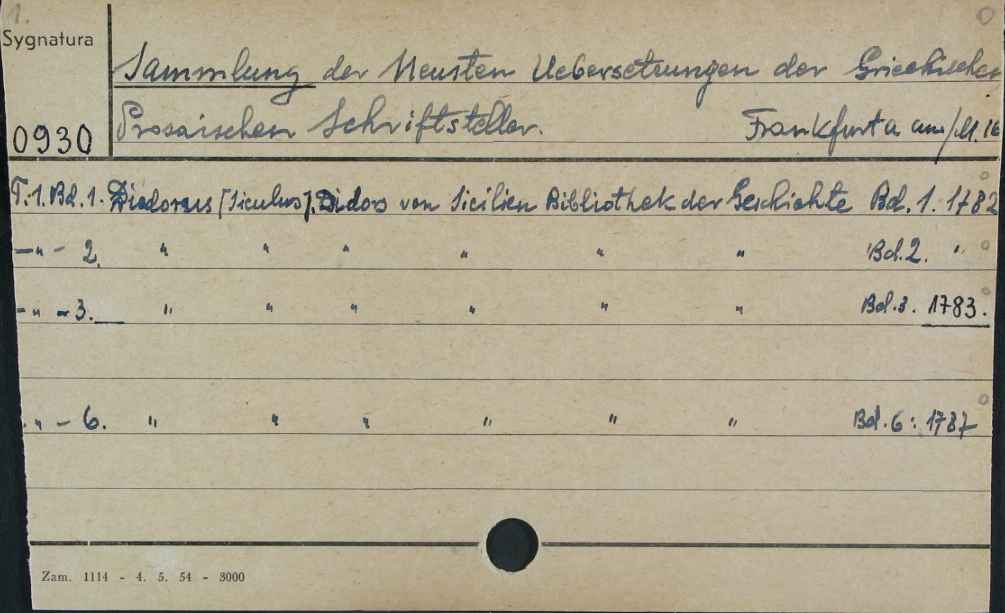 1.
Sygnatura
Sammlung der Neusten Uebersetzungen der Griechischen
0930 Prosaischen Schriftsteller. Frankfurt a am/M. 16
T.1. Bd.1. Diodorus [Siculus]. Didors von Sicilien Bibliothek der Geschichte Bd. 1. 1782
—„— 2. „ „ „ „ „ „ Bd. 2. „
-„- 3. „ „ „ „ „ „ Bd. 3. 1783.
-„- 6. „ „ „ „ „ „ Bd. 6: 1787
Zam. 1114 - 4. 5. 54 - 3000